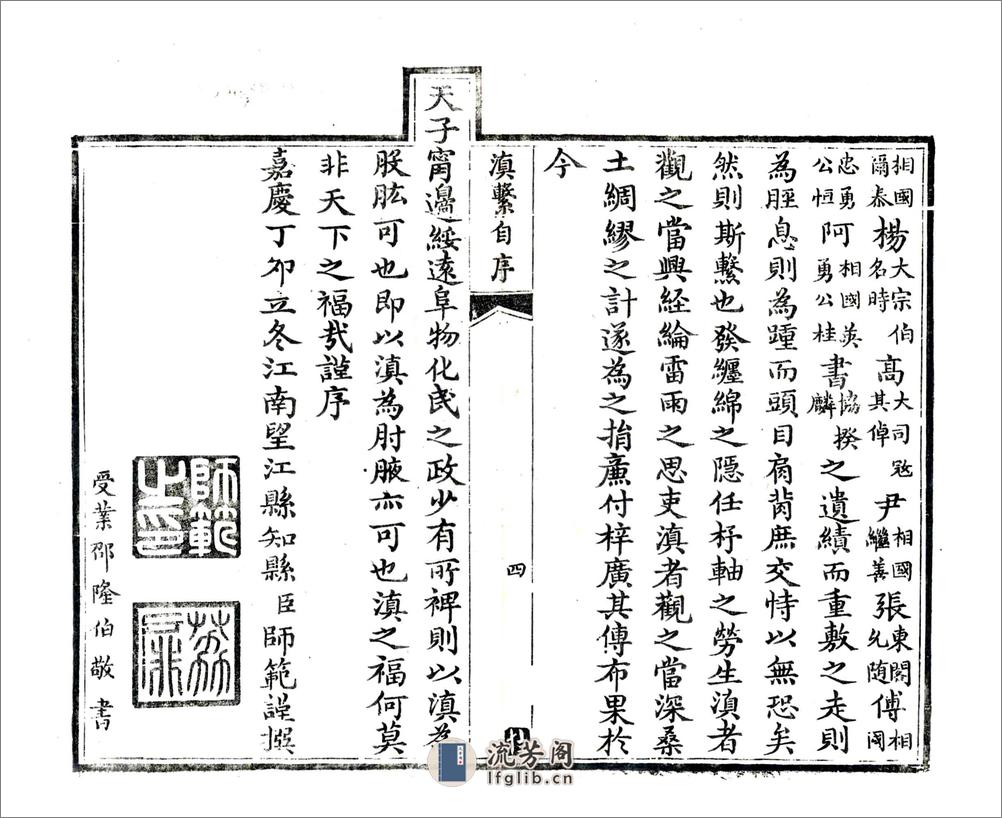 相國爾泰楊大宗伯名時高大司寇其倬尹相國繼善張東閣允隨傅相國
忠勇公恒阿相國英勇公桂書協揆麟之遺績而重敷之走則
為脛息則為踵而頭目肩背庶交恃以無恐矣
然則斯繫也發纏綿之隱任杼軸之勞生滇者
觀之當興経綸雷雨之思吏滇者觀之當深桑
土綢繆之計遂為之捐廉付梓廣其傳布果於
今
滇繫自序
四
天子甯邊綏遠阜物化民之政少有所裨則以滇為
股肱可也即以滇為肘腋亦可也滇之福何莫
非天下之福哉謹序
嘉慶丁卯立冬江南望江縣知縣臣師範謹撰
師範之印
荔扉
受業邵隆伯敬書
流芳阁
lfglib.cn